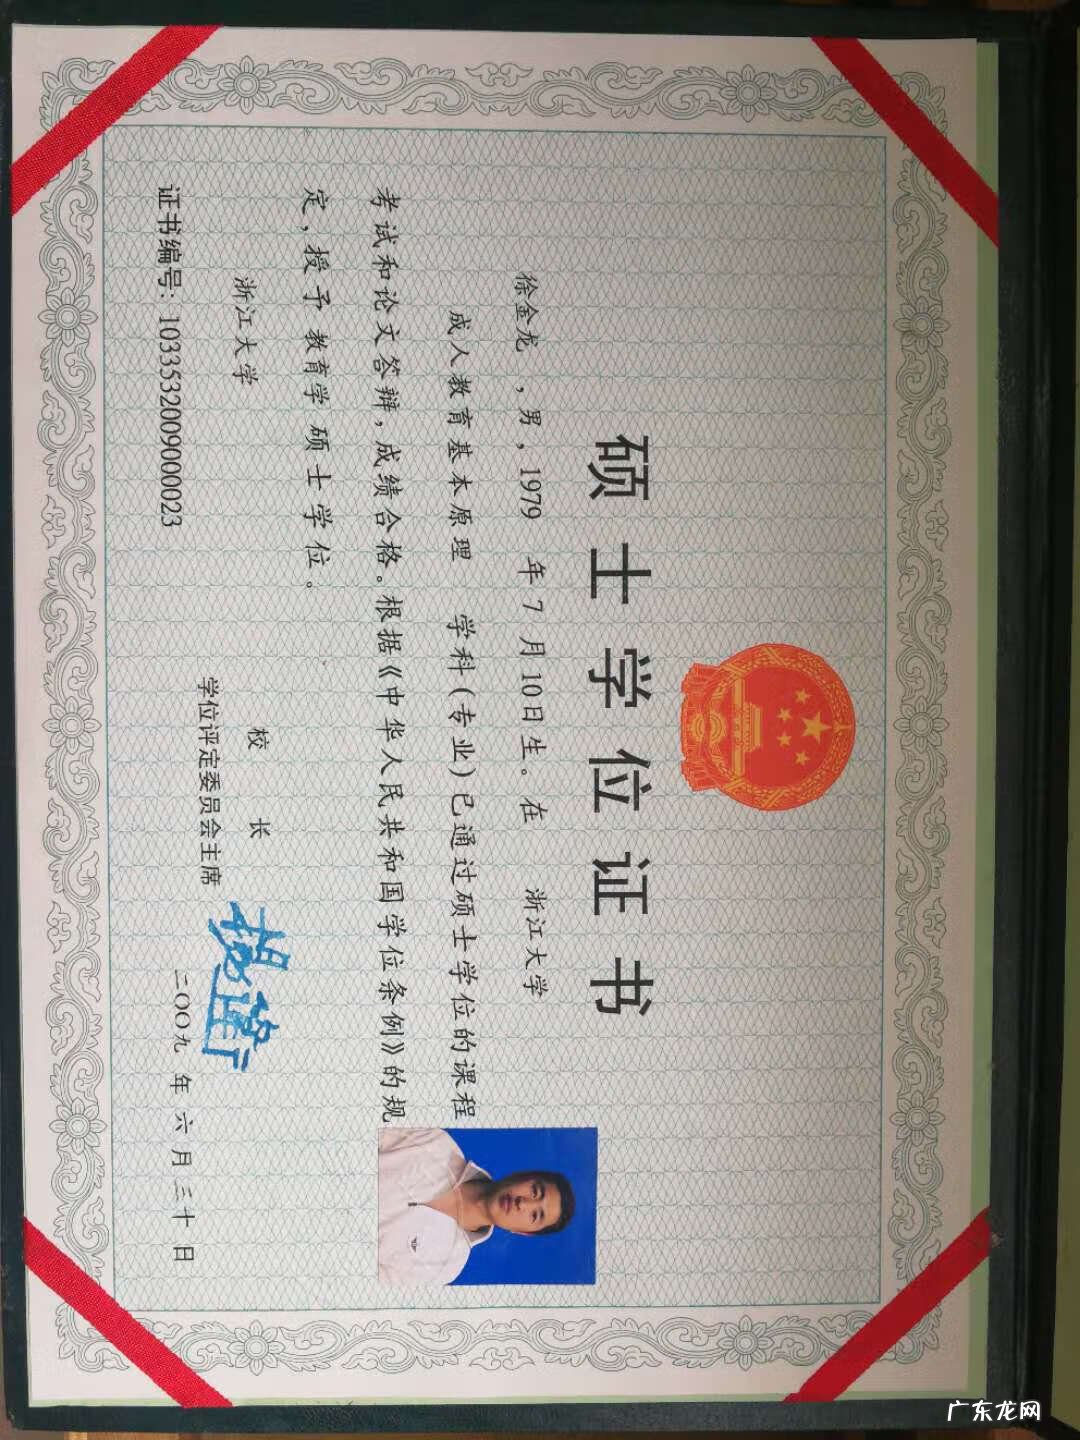 硕士学位证书
徐金龙 ，男，1979 年 7 月10日生。在 浙江大学
成人教育基本原理 学科(专业)已通过硕士学位的课程
考试和论文答辩，成绩合格。根据《中华人民共和国学位条例》的规
定，授予 教育学 硕士学位。
浙江大学
校 长
学位评定委员会主席
杨卫
证书编号：1033532009000023
二〇〇九 年 六 月 三十 日
广东龙网